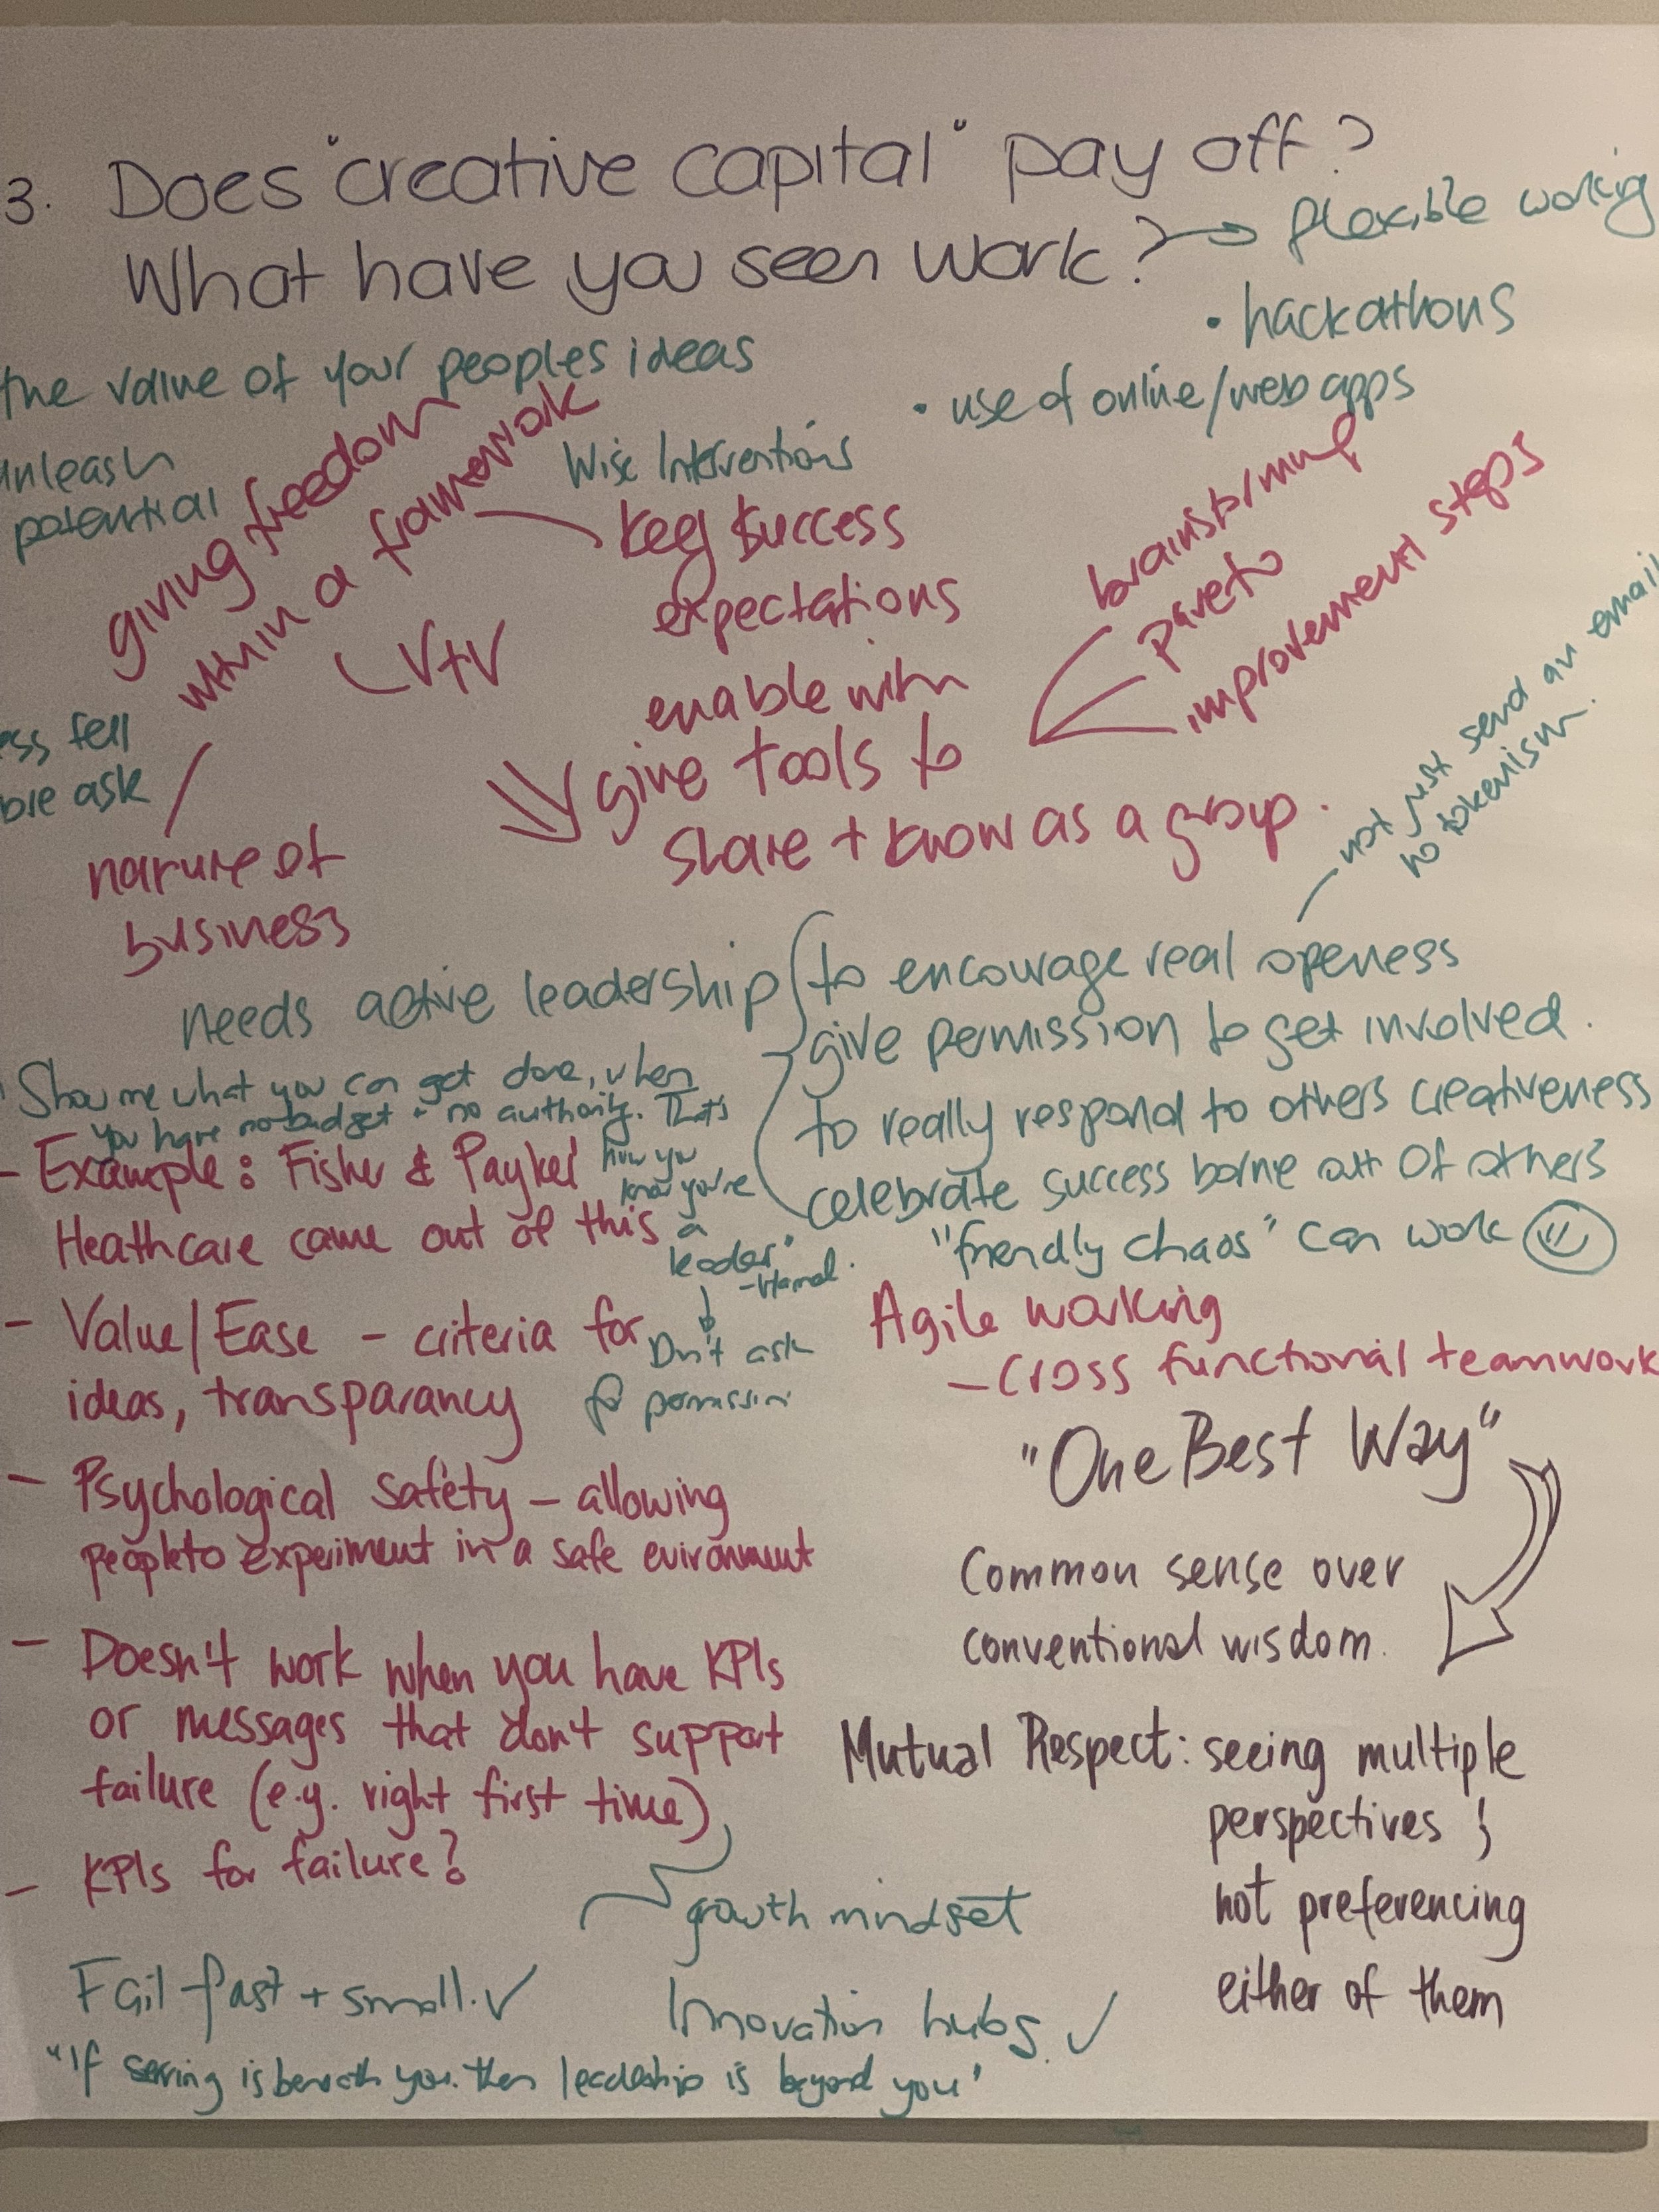 3. Does "creative capital" pay off?
What have you seen work?
flexible working
• hackathons
• use of online/web apps
the value of your peoples ideas
unleash
potential
giving freedom
within a framework
V+V
nature of
business
Wise Interventions
Key $uccess
expectations
enable with
give tools to
share + know as a group.
brainstorming
pareto
improvement steps
not just send an email
no tokenism.
ess fell
ble ask
needs active leadership
to encourage real openess
give permission to get involved.
to really respond to others creativeness
celebrate success borne out of others
"friendly chaos" can work
"Show me what you can get done, when
you have no budget + no authority. That's
how you
know you're
a
leader"
- Hamel.
Don't ask
for permission
- Example: Fisher & Paykel
Heathcare came out of this
- Value/Ease - criteria for
ideas, transparancy
- Psychological safety - allowing
people to experiment in a safe evironment
- Doesn't work when you have KPIs
or messages that don't support
failure (e.g. right first time)
- KPIs for failure?
Agile working
- cross functional teamwork
"One Best Way"
Common sense over
conventional wisdom.
Mutual Respect: seeing multiple
perspectives &
not preferencing
either of them
growth mindset
Fail fast + small. ✓
Innovation hubs. ✓
"If serving is beneath you. then leadership is beyond you"